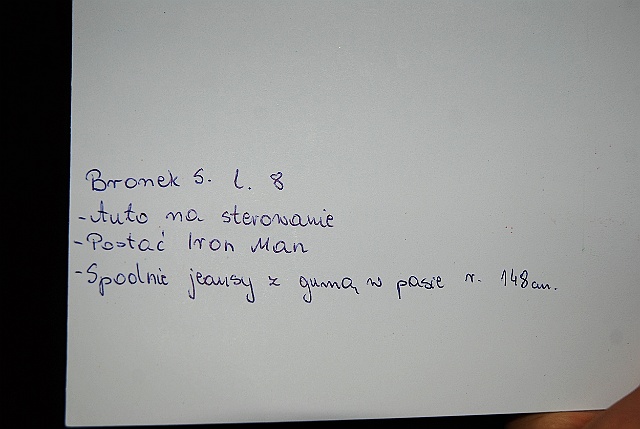 Bronek S. l. 8
- Auto na sterowanie
- Postać Iron Man
- Spodnie jeansy z gumą w pasie r. 148 cm.